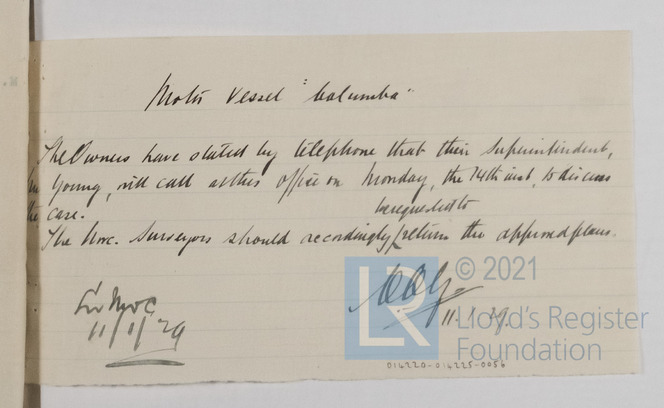 Motor Vessel "Columba"
The Owners have stated by telephone that their Superintendent,
Mr Young, will call at this office on Monday, the 14th inst, to discuss
the case.
be requested to
The Nwc. Surveyors should accordingly return the approved plans.
11/1/29
11.1.29
LR
© 2021
Lloyd's Register
Foundation
014220-014225-0056